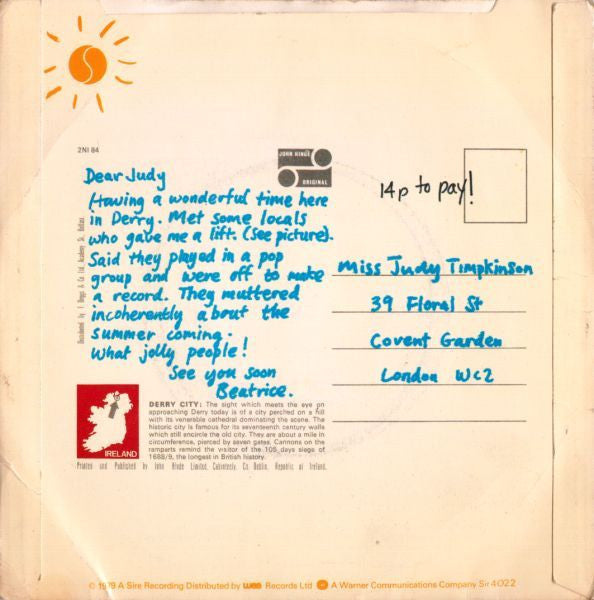 2NI 84
JOHN HINDE
ORIGINAL
Dear Judy
Having a wonderful time here
in Derry. Met some locals
who gave me a lift. (See picture).
Said they played in a pop
group and were off to make
a record. They muttered
incoherently about the
summer coming.
What jolly people!
See you soon
Beatrice.
14p to pay!
Miss Judy Timpkinson
39 Floral St
Covent Garden
London WC2
IRELAND
DERRY CITY: The sight which meets the eye on
approaching Derry today is of a city perched on a hill
with its venerable cathedral dominating the scene. The
historic city is famous for its seventeenth century walls
which still encircle the old city. They are about a mile in
circumference, pierced by seven gates. Cannons on the
ramparts remind the visitor of the 105 days siege of
1688/9, the longest in British history.
Printed and Published by John Hinde Limited, Cabinteely, Co. Dublin, Republic of Ireland.
© 1979 A Sire Recording Distributed by wea Records Ltd A Warner Communications Company Sir 4022